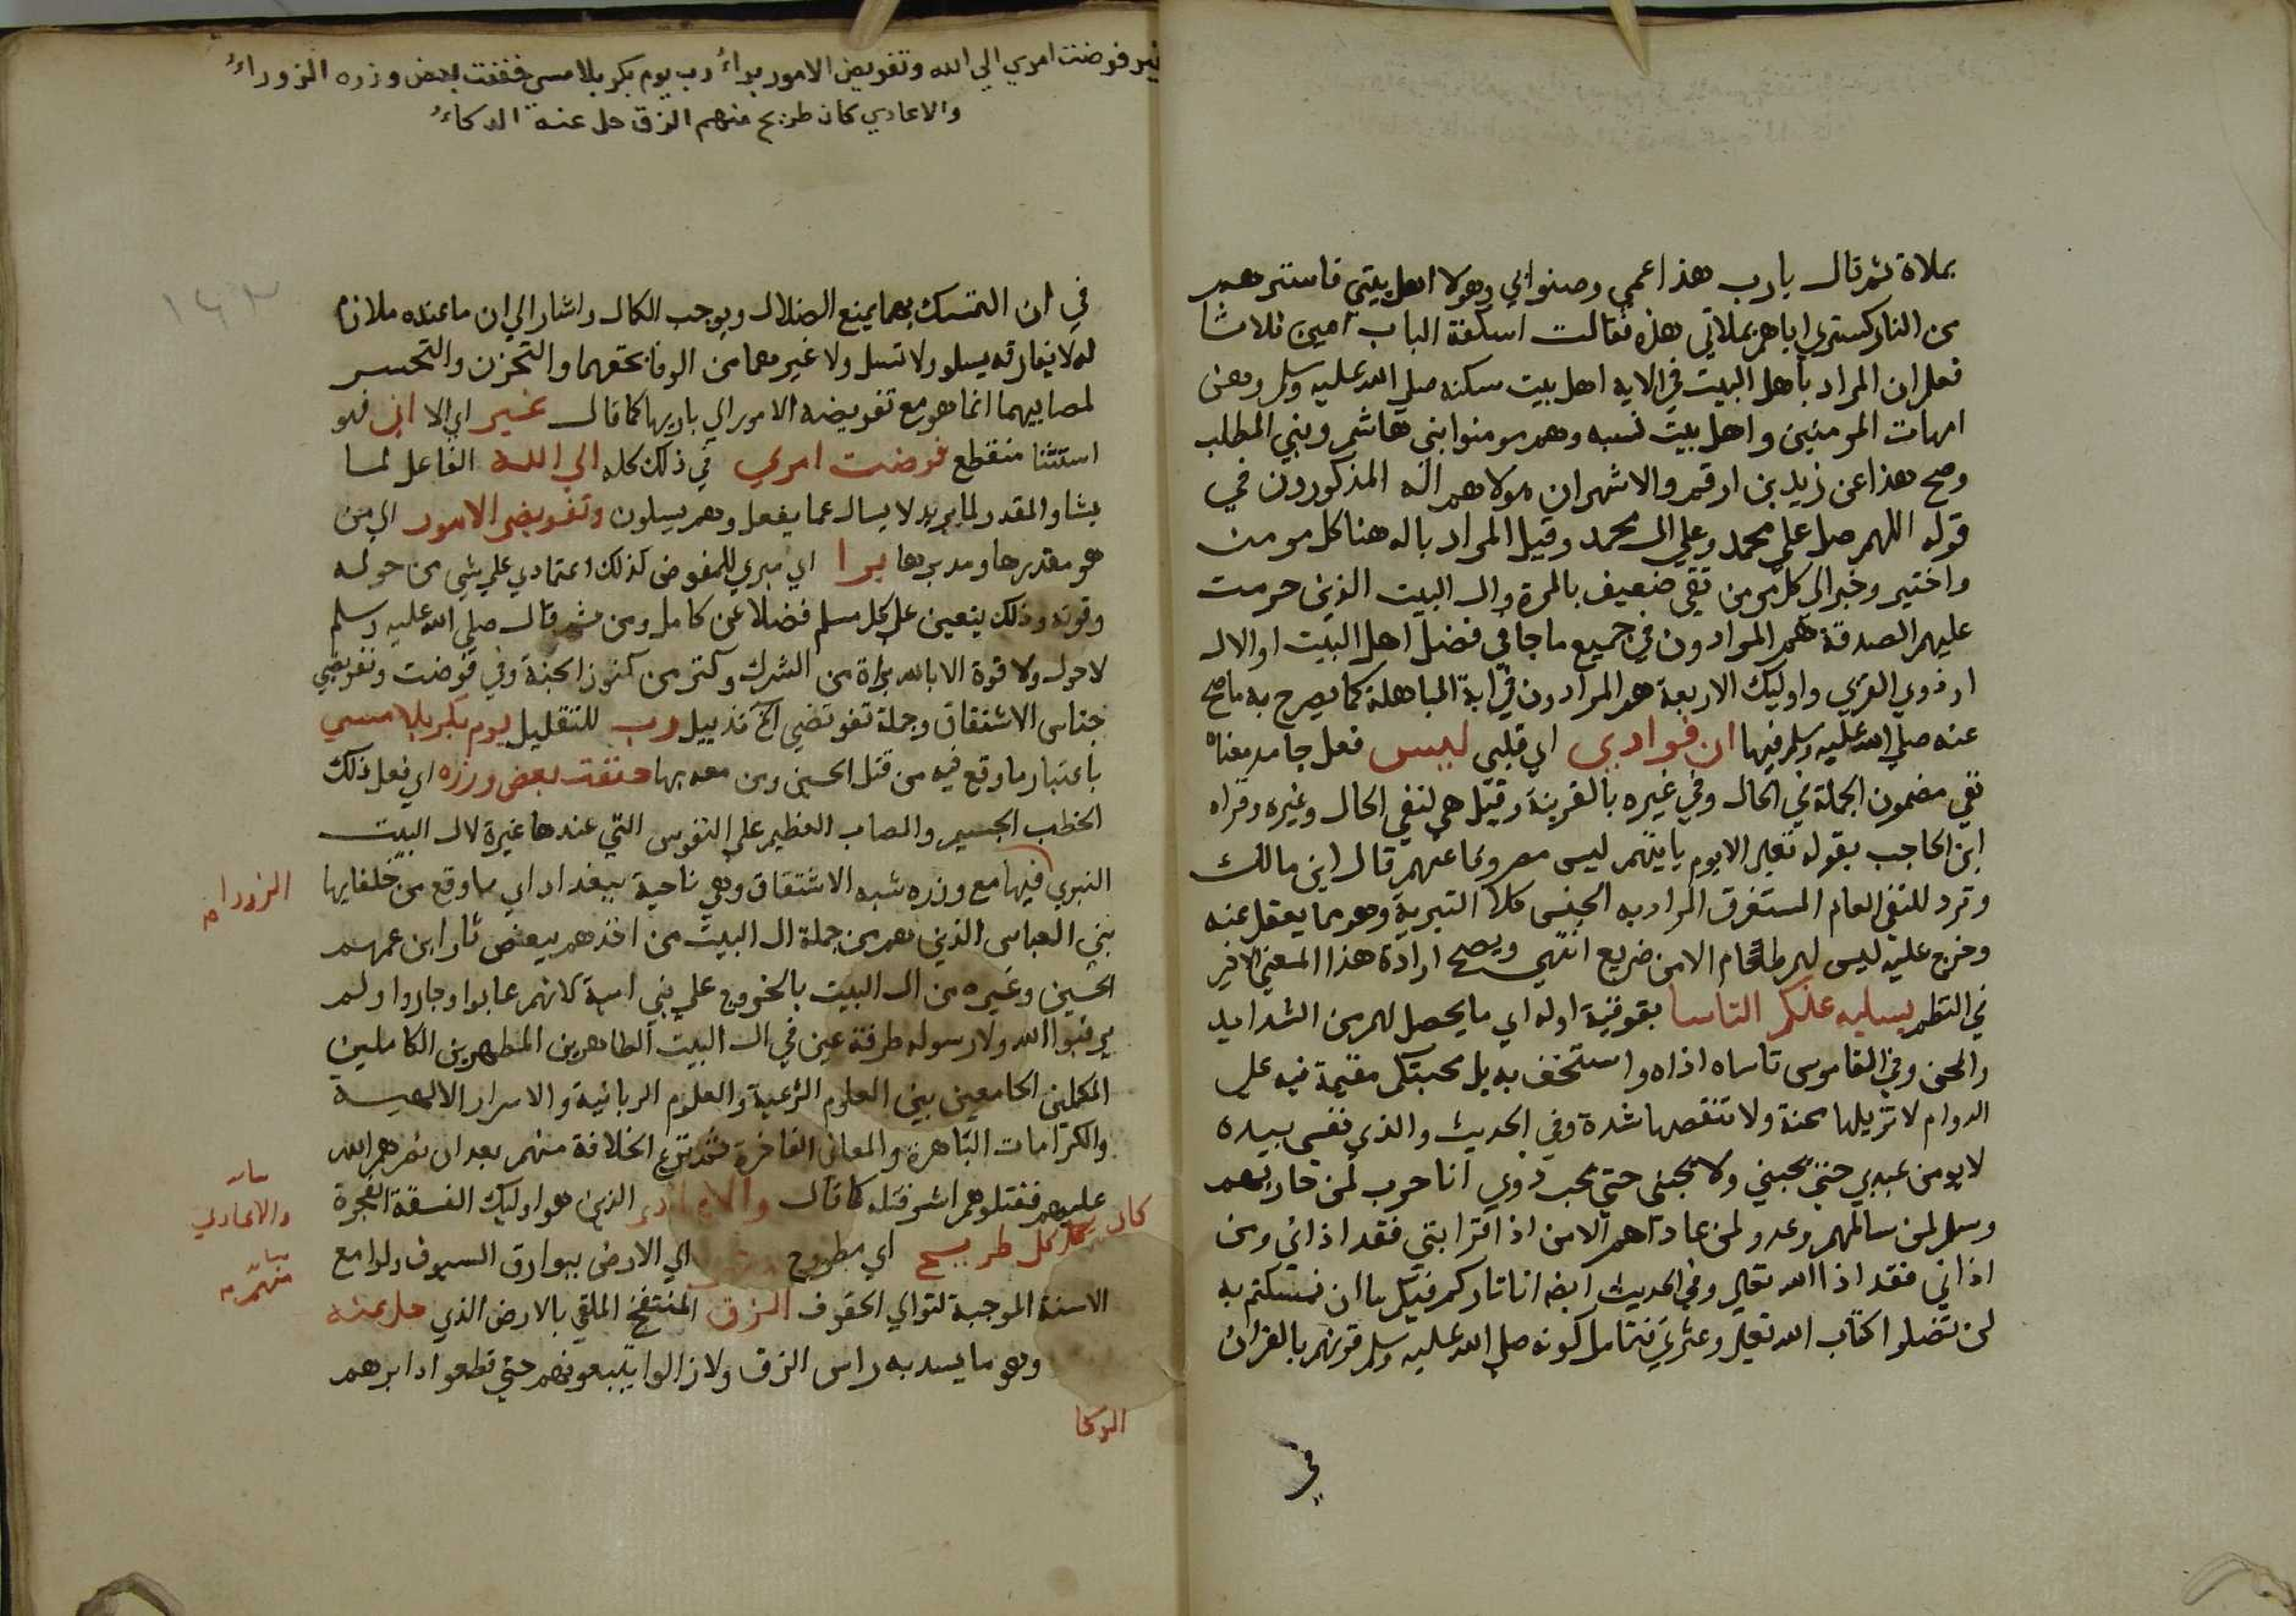 بملاة ثم قال يارب هذا عمي وصنوابي وهولا اهل بيتي فاسترهم
من النار كستري اياهم بملاتي هذه فقالت اسكفة الباب امين ثلاثا
فعلم ان المراد باهل البيت في الايه اهل بيت سكنه صلي الله عليه وسلم وهن
امهات المومنين واهل بيت نسبه وهم مومنوا بني هاشم وبني المطلب
وصح هذا عن زيد بن ارقم والاشهر ان هولاهم اله المذكورون في
قوله اللهم صل علي محمد وعلي ال محمد وقيل المراد باله هنا كل مومن
واختير وخبر الي كل مومن تقي ضعيف بالمرة وال البيت الذين حرمت
عليهم الصدقة هم المرادون في جميع ما جا في فضل اهل البيت او الال
او ذوي القربي واوليك الاربعة هو المرادون في اية المباهلة كما يصرح به ما صح
عنه صلي الله عليه وسلم فيها ان فوادي اي قلبي ليس فعل جامد معناه
نفي مضمون الجملة في الحال وفي غيره بالقرينة وقيل هي لنفي الحال وغيره وقواه
ابن الحاجب بقوله تعلي الا يوم ياتيهم ليس مصروفا عنهم قال ابن مالك
وترد للنفي العام المستغرق المراد به الجنس كلا التبرية وهو مما يغفل عنه
وخرج عليه ليس لهم طعام الا من ضريع انتهي ويصح ارادة هذا المعني الاخير
في النظم يسليه عنكم التاسا بفوقية اوله اي ما يحصل لهم من الشدايد
والمحن وفي القاموس تاساه اذاه واستخف به بل محبتكم مقيمة فيه علي
الدوام لا تزيلها محنة ولا تنقصها شدة وفي الحديث والذي نفسي بيده
لا يومن عبد بي حتي يحبني ولا يحبني حتي يحب ذوي انا حرب لمن حاربهم
وسلم لمن سالمهم وعدو لمن عاداهم الا من اذا قرابتي فقد اذاني ومن
اذاني فقد اذا الله تعالي وفي الحديث ايضه اني تارك فيكم ما ان تمسكتم به
لن تضلوا كتاب الله تعلي وعترتي فتامل كونه صلي الله عليه وسلم قرنهم بالقران
في
غير فوضت امري الي الله وتفويض الامور براءُ رب يوم بكربلا مسي خففت بعض وزره الزوراءُ
والاعادي كان طريح منهم الزق حل عنه الوكاءُ
١٤٣
في ان التمسك بهما يمنع الضلال ويوجب الكمال واشار الي ان ما عنده ملازما
له لا يفارقه يسلو ولا تسل ولا غير هما من الوفا بحقهما والتحزن والتحسر
لمصابيهما انما هو مع تفويضه الامور الي باريها كما قال غير اي الا اني فهو
استثنا منقطع فوضت امري في ذلك كله الي الله الفاعل لما
يشا والمقدر لما يريد لا يسال عما يفعل وهم يسلون وتفويض الامور الي من
هو مقدرها ومدبرها برا اي مبري للمفوض كذلك اعتمادي علي شي من حوله
وقوته وذلك يتعين علي كل مسلم فضلا عن كامل ومن ثم قال صلي الله عليه وسلم
لا حول ولا قوة الا بالله براة من الشرك وكنز من كنوز الجنة وفي فوضت وتفويضي
جناس الاشتقاق وجملة تفويضي الخ تذييل رب للتقليل يوم بكربلا مسي
باعتبار ما وقع فيه من قتل الحسين ومن معه بها خففت بعض وزره اي فعل ذلك
الخطب الجسيم والمصاب العظيم علي النفوس التي عندها غيرة لال البيت
النبوي فيها مع وزره شبه الاشتقاق وهي ناحية ببغداد اي ما وقع من خلفايها
الزورا
بني العباس الذين هم من جملة ال البيت من اخذهم ببعض ثار ابن عمهم
الحسين وغيره من ال البيت بالخروج علي بني امية لانهم عابوا وجاروا ولم
يرقبوا الله ولا رسوله طرفة عين في ال البيت الطاهرين المطهرين الكاملين
المكملين الجامعين بين العلوم الشرعية والعلوم الربانية والاسرار الالهية
والكرامات الباهرة والمعاني الفاخرة ثم نزع الخلافة منهم بعد ان نصرهم الله
عليهم فقتلوهم اشر قتله كما قال والاعادي الذين هو اوليك الفسقة الفجرة
والاعادي
كان كل طريح اي مطروح اي الارض ببوارق السيوف ولوامع
منهم
الاسنة الموجبة لتوالي الحتوف الزق المنتفخ الملقي بالارض الذي حل عنه
وهو ما يسد به راس الزق ولا زالوا يتبعونهم حتي قطعوا دابرهم
الوكا